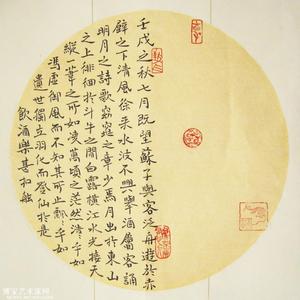 壬戌之秋七月既望蘇子與客泛舟遊於赤
壁之下清風徐來水波不興舉酒屬客誦
明月之詩歌窈窕之章少焉月出於東山
之上徘徊於斗牛之間白露橫江水光接天
縱一葦之所如凌萬頃之茫然浩〻乎如
馮虛御風而不知其所止飄〻乎如
遺世獨立羽化而登仙於是
飲酒樂甚扣舷